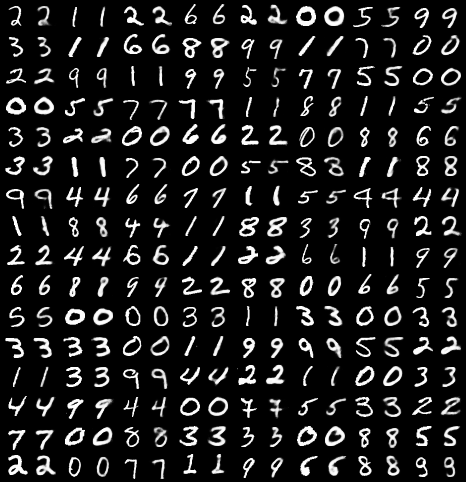 2 2 1 1 2 2 6 6 2 2 0 0 5 5 9 9
3 3 1 1 6 6 8 8 9 9 1 1 7 7 0 0
2 2 9 9 1 1 9 9 5 5 7 7 5 5 0 0
0 0 5 5 7 7 7 7 1 1 8 8 1 1 5 5
3 3 2 2 0 0 6 6 2 2 0 0 8 8 6 6
3 3 1 1 7 7 0 0 5 5 8 8 1 1 8 8
9 9 4 4 6 6 7 7 1 1 5 5 4 4 4 4
1 1 8 8 4 4 1 1 8 8 3 3 9 9 2 2
2 2 4 4 6 6 1 1 2 2 6 6 1 1 9 9
6 6 8 8 9 9 2 2 8 8 0 0 6 6 5 5
5 5 0 0 0 0 3 3 1 1 3 3 0 0 3 3
3 3 3 3 0 0 1 1 9 9 9 9 5 5 2 2
1 1 3 3 9 9 4 4 2 2 1 1 0 0 3 3
4 4 9 9 4 4 0 0 7 7 5 5 3 3 2 2
7 7 0 0 8 8 3 3 3 3 0 0 8 8 5 5
2 2 0 0 7 7 1 1 9 9 6 6 8 8 9 9